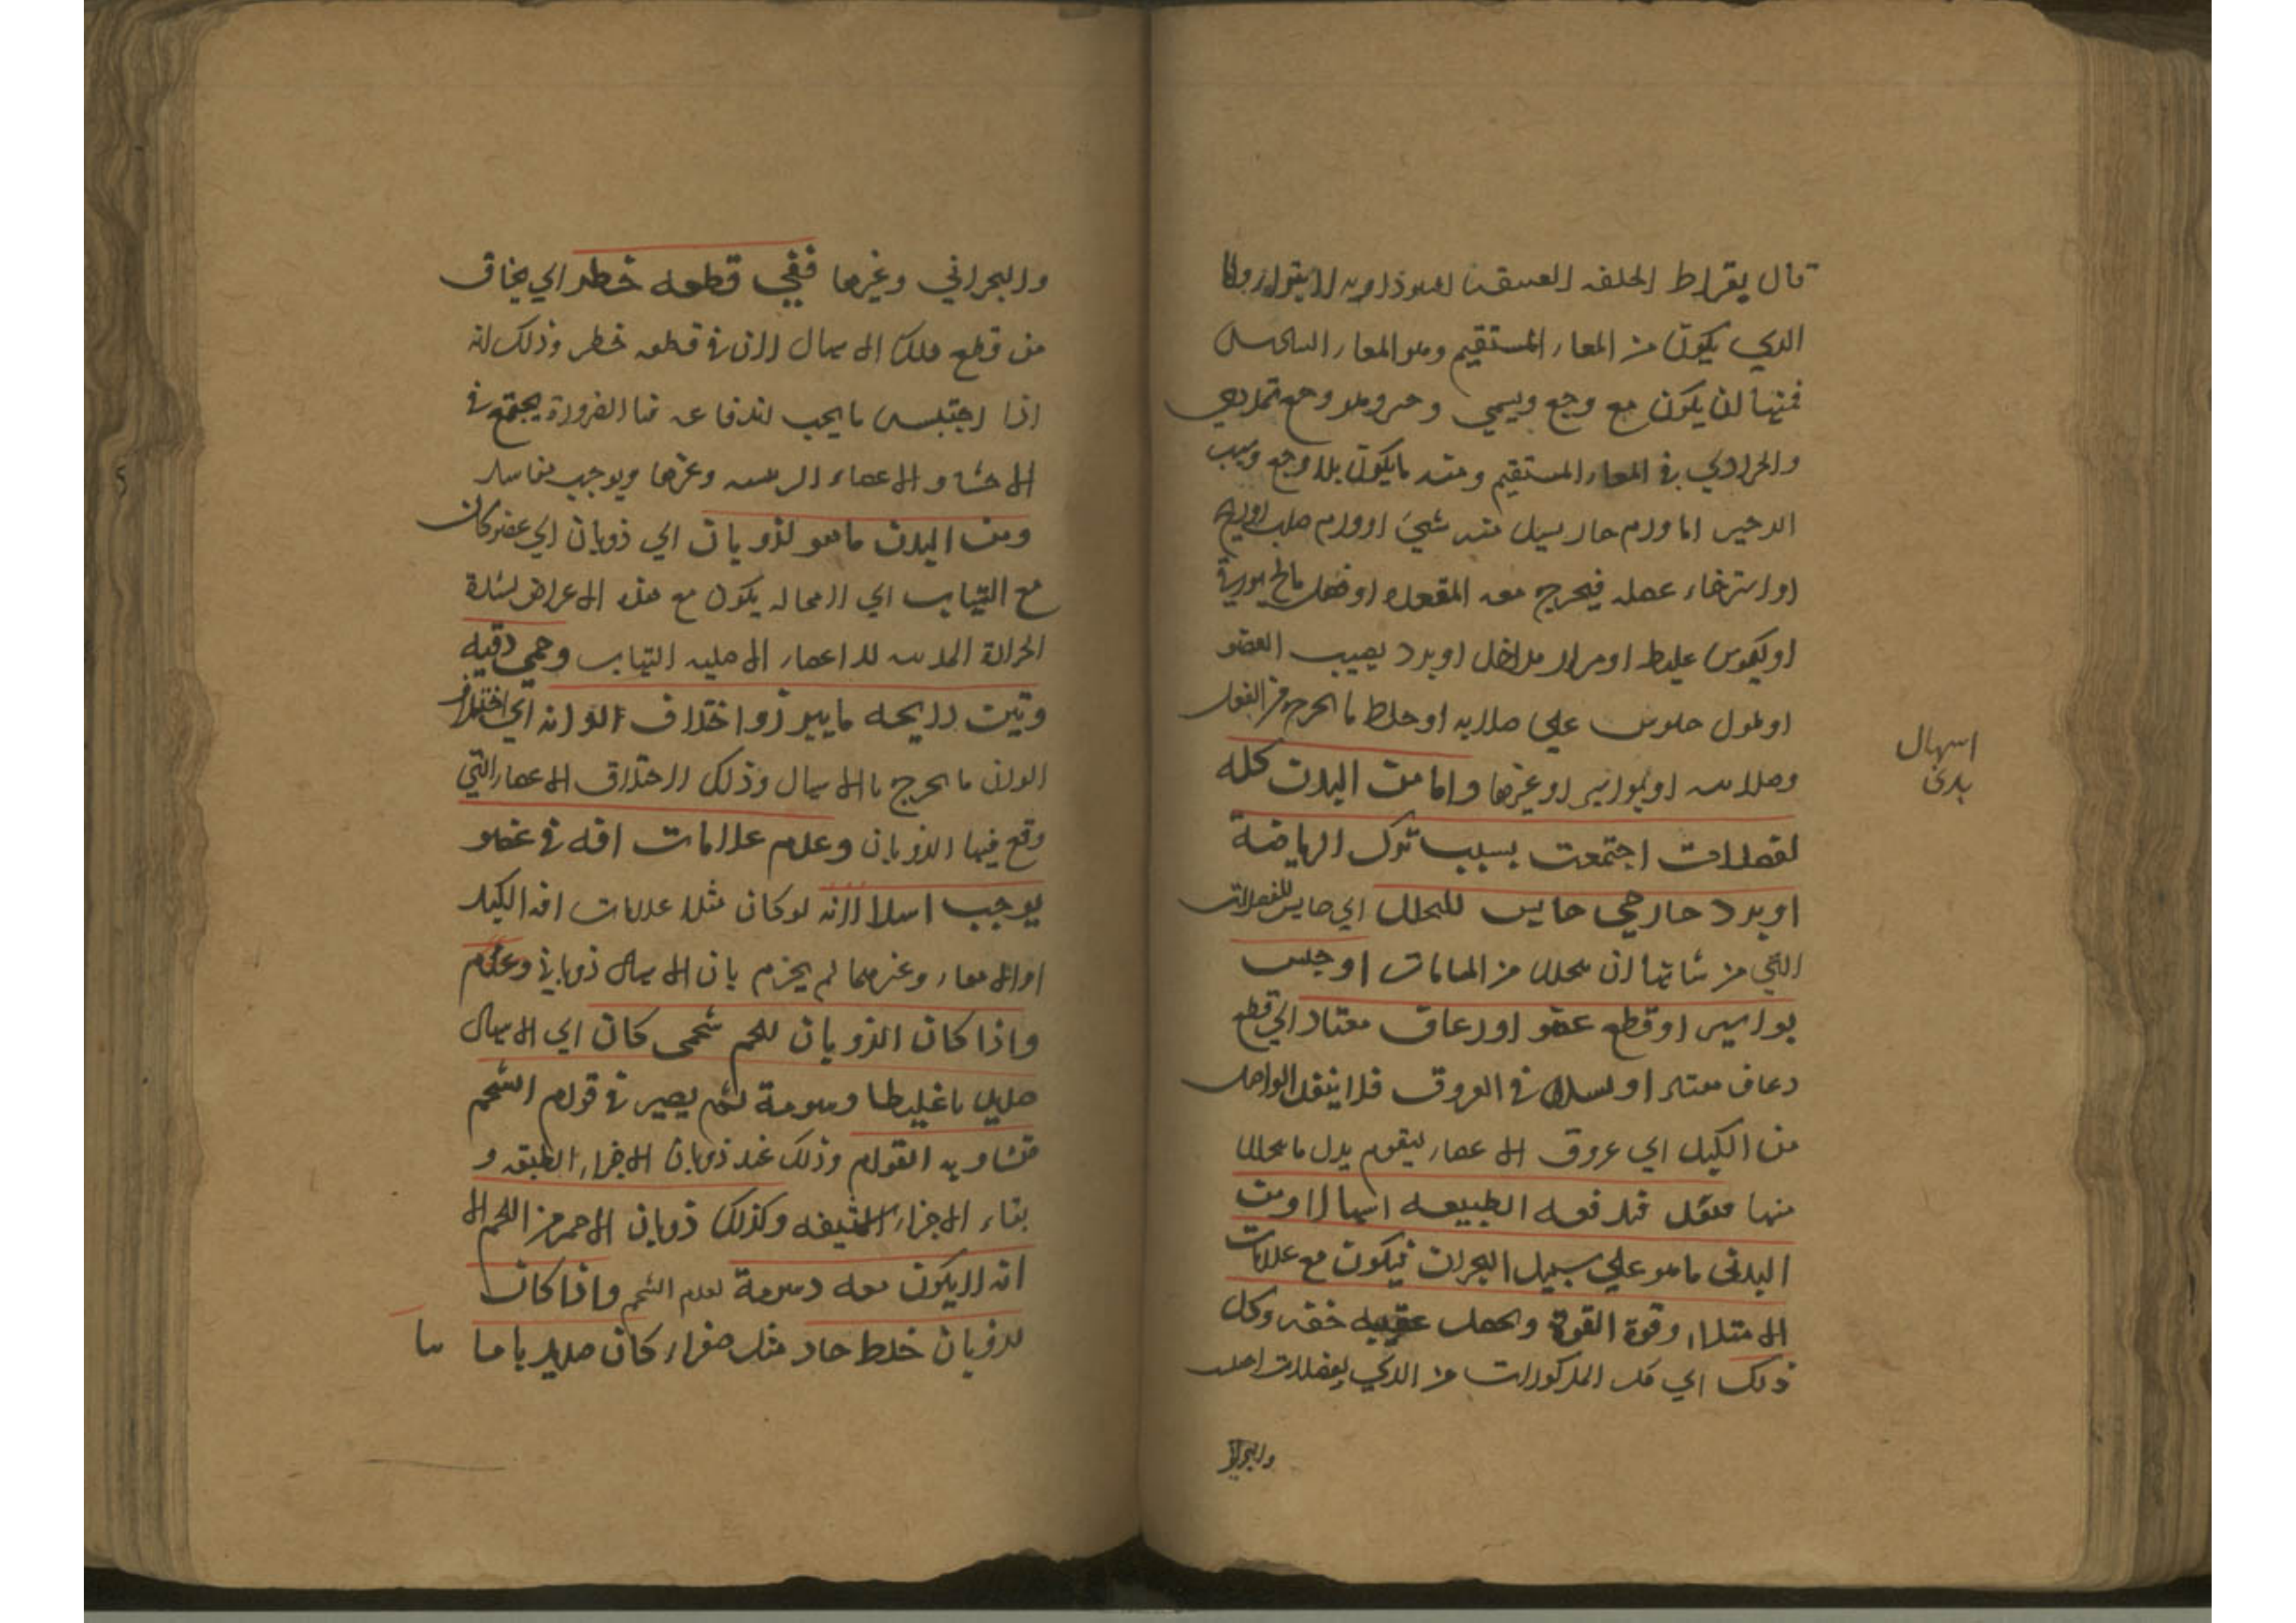 قال بقراط الخلفه العتيقة السوداوية لا تبرأ واما
الذي يكون من المعاء المستقيم وهو المعاء السادس
فمنها ان يكون مع وجع ويسمى زحير وهو وجع تمددي
وانجرادي في المعاء المستقيم ومنه ما يكون بلا وجع وسبب
الزحير اما ورم حار يسيل منه شيء او ورم صلب او ريح
او استرخاء عضله فيخرج معه المقعده او فضل مالح بورقي
او كيموس غليظ او مرار مداخل او برد يصيب العضو
او طول جلوس علي صلابه او خلط ما يخرج من الثفل
وصلابته او بواسير او غيرها واما من البدن كله
لفضلات اجتمعت بسبب ترك الرياضة
او برد خارجي حابس للتحلل اي حابس للفضلات
التي من شانها ان تتحلل من المسامات او حبس
بواسير او قطع عضو او رعاف معتاد اي قطع
رعاف معتاد او لسدد في العروق فلا ينفذ الواصل
من الكبد اي عروق الاعضاء ليقوم بدل ما يتحلل
منها فتثقل فتدفعه الطبيعه اسهالا ومن
البدني ما هو علي سبيل البحران فيكون مع علامات
الامتلاء وقوة القوة ويحصل عقيبه خفه وكل
ذلك اي كل المذكورات من الذي لفضلات
والبحراني
اسهال
بدني
والبحراني وغيرها ففي قطعه خطر اي يخاف
من قطع هذا الاسهال لان في قطعه خطر وذلك لانه
اذا احتبس ما يجب اندفاعه فبالضرورة يجتمع في
الاحشاء والاعضاء الرئيسه وغيرها ويوجب فسادا
ومن البدن ما هو لذوبان اي ذوبان اي عضو كان
مع التهاب اي لا محاله يكون مع هذه الاعراض لشدة
الحرارة المذيبه للاعضاء الاصليه التهاب وحمي دقيه
ونتن رايحه ما يبرز واختلاف الوانه اي اختلاف
الوان ما يخرج بالاسهال وذلك لاختلاف الاعضاء التي
وقع فيها الذوبان وعدم علامات افه في عضو
يوجب اسهالا لانه لو كان مثلا علامات افه الكبد
او الامعاء وغيرهما لم يجزم بان الاسهال ذوباني وعدم
واذا كان الذوبان للحم شحمي كان اي الاسهال
صديدا غليظا دسومة ثم يصير في قوام الشحم
متشاويه القوام وذلك عند ذوبان الاجزاء الرقيقه و
بقاء الاجزاء الكثيفه وكذلك ذوبان الاحمر من اللحم الا
انه لا يكون معه دسومة لعدم الشحم واذا كان
لذوبان خلط حاد مثل صفراء كان صديديا ما